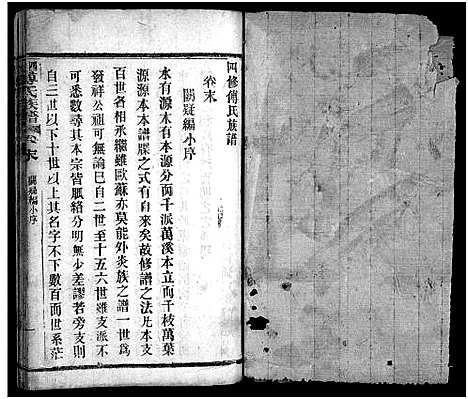 四修傅氏族譜
卷末
闕疑編小序
水有源木有本源分而千派萬溪本立而千枝萬葉
源源本本譜牒之式有自來矣故修譜之法凡本支
百世各相承繼雖歐蘇亦莫能外炎族之譜一世為
發祥公祖可無論已自二世至十五六世雖支派不
可悉數尋其本宗皆脈絡分明無少差謬若旁支則
自三世以下十世以上其名字不下數百而世系茫
氏族譜
卷末
闕疑編小序